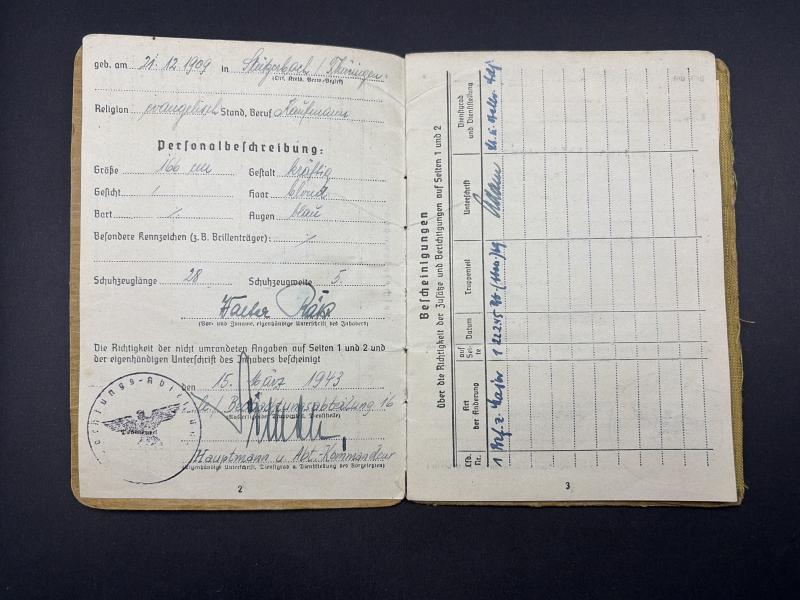 geb. am 21.12.1909 in Stützerbach / Thüringen.
(Ort, Kreis, Verw.-Bezirk)
Religion evangelisch Stand, Beruf Kaufmann
Personalbeschreibung:
Größe 166 cm Gestalt kräftig
Gesicht / Haar blond
Bart / Augen blau
Besondere Kennzeichen (z.B. Brillenträger): /
Schuhzeuglänge 28 Schuhzeugweite 5.
Walter
(Vor- und Zuname, eigenhändige Unterschrift des Inhabers)
Die Richtigkeit der nicht umrandeten Angaben auf Seiten 1 und 2 und
der eigenhändigen Unterschrift des Inhabers bescheinigt
den 15. März 1943
Beobachtungsabteilung 16
Hauptmann u. Abt.-Kommandeur
(Eigenhändige Unterschrift, Dienstgrad u. Dienststellung des Vorgesetzten)
2
Bescheinigungen
über die Richtigkeit der Zusätze und Berichtigungen auf Seiten 1 und 2
Lfd. Nr.
Art der Änderung
auf Sei- te
Datum
Truppenteil
Unterschrift
Dienstgrad und Dienststellung
1 1 22.2.45
3